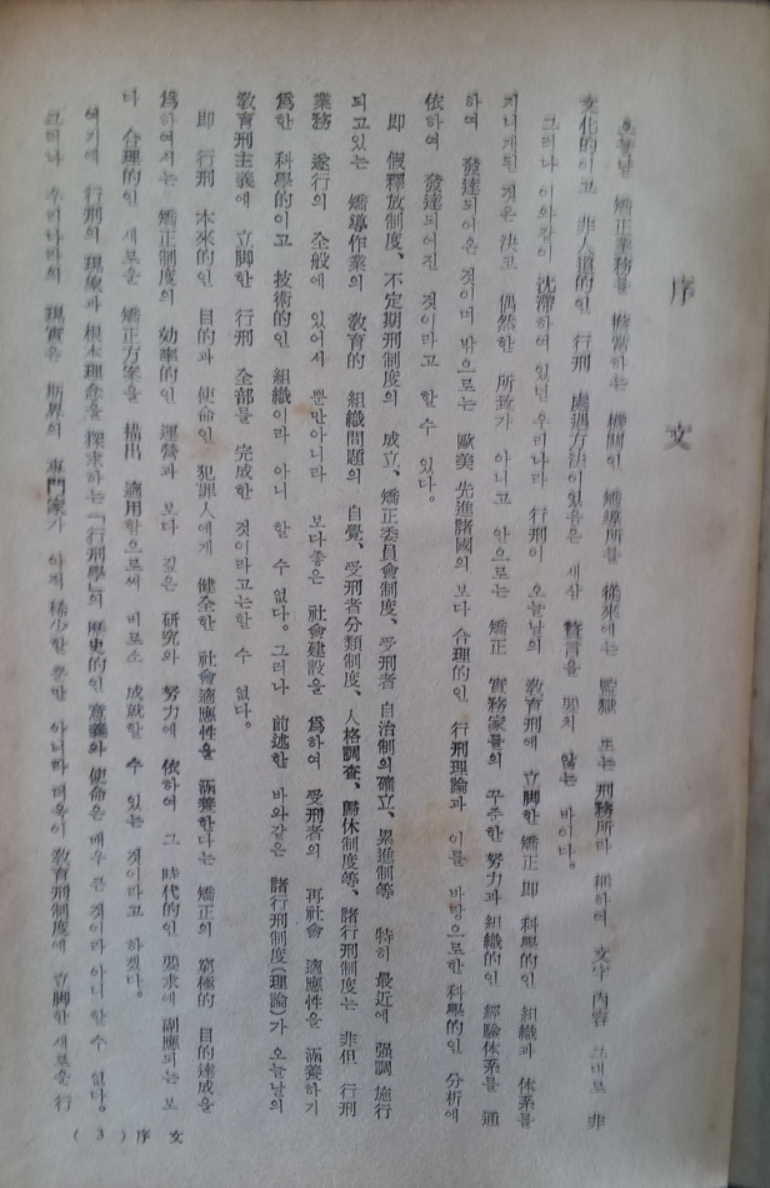 序 文
오늘날 矯正業務를 擔當하는 機關인 矯導所를 從來에는 監獄 또는 刑務所라 稱하여 文字 內容 그대로 非
文化的이고 非人道的인 行刑 處遇方法이었음은 새삼 贅言을 要치 않는 바이다。
그러나 이와같이 沈滯하여 있던 우리나라 行刑이 오늘날의 敎育刑에 立脚한 矯正 即 科學的인 組織과 体系를
지니게된 것은 決코 偶然한 所致가 아니고 안으로는 矯正 實務家들의 꾸준한 努力과 組織的인 經驗体系를 通
하여 發達되어온 것이며 밖으로는 歐美 先進諸國의 보다 合理的인 行刑理論과 이를 바탕으로한 科學的인 分析에
依하여 發達되어진 것이라고 할 수 있다。
即 假釋放制度、不定期刑制度의 成立、矯正委員會制度、受刑者 自治制의確立、累進制等 特히 最近에 强調 施行
되고있는 矯導作業의 敎育的 組織問題의 自覺、受刑者分類制度、人格調査、歸休制度等、諸行刑制度는 非但 行刑
業務 遂行의 全般에 있어서 뿐만아니라 보다좋은 社會建設을 爲하여 受刑者의 再社會 適應性을 涵養하기
爲한 科學的이고 技術的인 組織이라 아니 할 수 없다。그러나 前述한 바와같은 諸行刑制度(理論)가 오늘날의
敎育刑主義에 立脚한 行刑 全部를 完成한 것이라고는할 수 없다。
即 行刑 本來的인 目的과 使命인 犯罪人에게 健全한 社會適應性을 涵養한다는 矯正의 窮極的 目的達成을
爲하여서는 矯正制度의 効率的인 運營과 보다 깊은 硏究와 努力에 依하여 그 時代的인 要求에 副應되는 보
다 合理的인 새로운 矯正方案을 描出 適用함으로써 비로소 成就할 수 있는 것이라고 하겠다。
여기에 行刑의 現象과 根本理念을 探求하는「行刑學」의 歷史的인 意義와 使命은 매우 큰 것이라 아니 할 수 없다。
그러나 우리나라의 現實은 斯界의 專門家가 아직 稀少할 뿐만 아니라 더욱이 敎育刑制度에 立脚한 새로운 行
序 文 ( 3 )